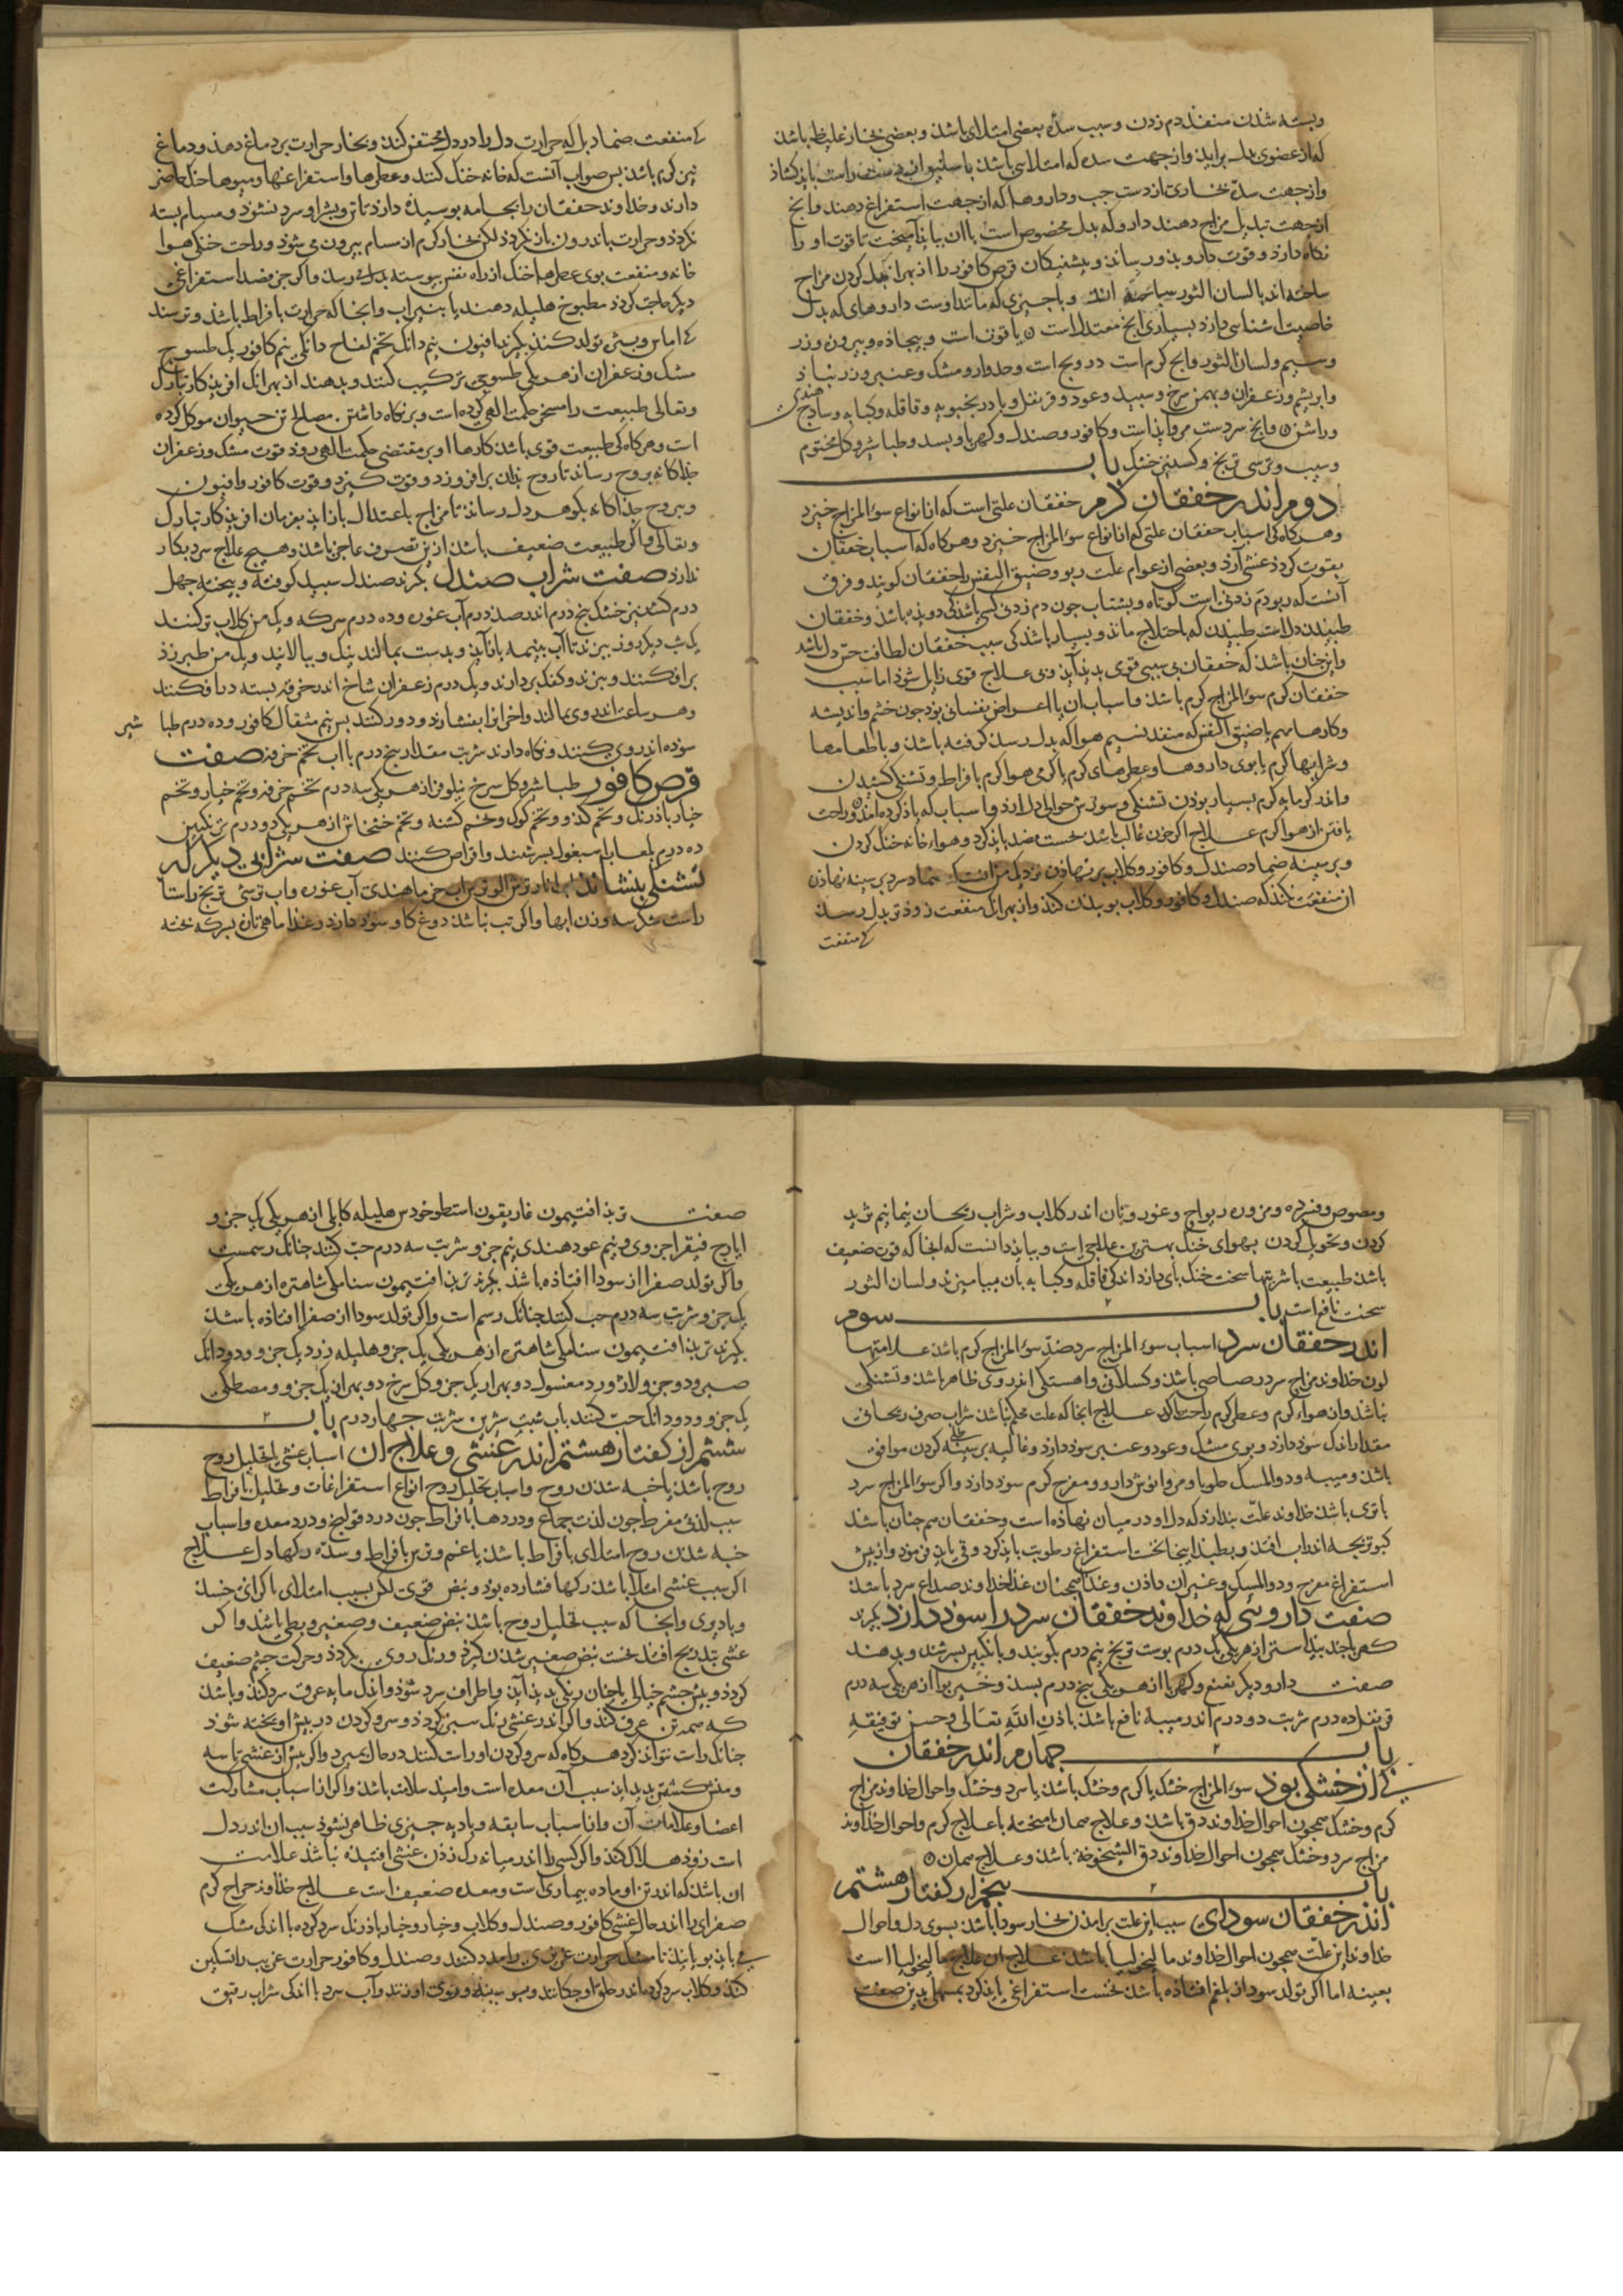 وبسته شذن منفذ دم زدن وسبب سدّه بعضی امتلای باشذ وبعضی بخار غلیظ باشذ
که از عضوی بدل براید واز جهت سده که امتلای باشذ باسلیق از دست راست باید کشاذ
واز جهت سدّه بخاری از دست چپ وداروها که از جهت استفراغ دهند وانج
از جهت تبدیل مزاج دهند دارو که بدل مخصوص است باان بیاید آمیخت تا قوت او را
نکاه دارذ وقوت دارو بذو رساند وپیشینکان قرص کافور را از بهر کردن مزاج
ساخته اند بالسان الثور واجیزی که مانند اوست داروهای که بدل
خاصیت اشنایی دارذ بسیارى انج معتدلست یاقوت است وبیجاذه وپیروزه وزر
وسیم ولسان الثور وانج کرم است درونج است وجدوار ومشک وعنبر وزرنباد
وابریشم وزعفران وبهمن سرخ وسپید وعود وقرنفل وبادرنجبویه وقاقله وکبابه وساذج هندی
وراسن وانج سردست مروارید است وکافور وصندل وکهربا وبسد وطباشیر وکل مختوم
وسیب وترشی ترنج وکشنیز خشک باب
دوم اندر خفقان کرم خفقان علتی است که از انواع سوء المزاج خیزد
وهر کاه کی اسباب خفقان علتی که از انواع سوء المزاج خیزد وهر کاه که اسباب خفقان
بقوت کردذ غشی آرذ وبعضی از عوام علت ربو وضیق النفس را خفقان کویند وفرق
آنست که ربو دم زدنی است کوتاه وبشتاب چون دم زدن کسی باشذ کی دویذه باشذ وخفقان
طبیدن دلست طبیدن که باختلاج ماند وبسیار باشد کی سبب خفقان لطافت حس دل باشد
واین چنان باشذ که خفقان بی سببی قوی پدید آید وبی علاج قوی زایل شوذ اما سبب
خفقان کرم سوء المزاج کرم باشذ واسباب ان یا اعراض نفسانی بوذ جون خشم واندیشه
وکارها مهم یا ضیق النفس که منفذ نسیم هوا که بدل رسد کرفته باشذ ویا طعامها
وشرابها کرم یا بوی داروها وعطرهای کرم یا کرمی هوا کرم بافراط وتشنکی کشیدن
واندر کرمابه کرم بسیار بوذن تشنکی وسوزش حوالی دل ارذ واسباب که یاذ کرده آمد وراحت
یافتن از هوا کرم علاج اکر خون غالب باشذ نخست فصد باید کرد وهواء خانه خنک کردن
وبر سینه ضماد صندل وکافور وکلاب برنهاذن نزدیک من انست که ضماد سرد بر سینه نهاذن
آن منفعت نکند که صندل وکافور وکلاب بوییدن کند واز بهر انک منفعت زوذتر بدل رسد
کی منفعت
کی منفعت ضماد بل که حرارت دل را در دل محتقن کند وبخار حرارت بر دماغ دهذ ودماغ
نیز کرم باشذ پس صواب آنست که خانه خنک کنند وعطرها واسپرغمها ومیوها خنک حاضر
دارند وخداوند خفقان را بجامه پوسیده دارند تا تن وبشره او سرد نشود ومسام بسته
نکردذ وحرارت باندرون باز نکردذ لکن بخار کرم از مسام بیرون می شوذ وراحت خنکی هوا
خانه ومنفعت بوی عطرها خنک از راه نفس پیوسته بدل می رسد واکر جز فصد استفراغی
دیکر حاجت کردذ مطبوخ هلیله دهند یا بنیراب وانجا که حرارت بافراط باشذ وترسند
کی اماس وبثره تولد کند بکیرند افیون نیم دانک تخم لفاح دانکی نیم کافور یک طسوج
مشک وزعفران از هر یکی طسوجی ترکیب کنند وبدهند از بهر انک افریذکار تبارک
وتعالی طبیعت را مسخر حکمت الهی کرده است وبر نکاه داشتن مصالح تن حیوان موکل کرده
است وهر کاه کی طبیعت قوی باشذ کارها او بر مقتضی حکمت الهی رود قوت مشک وزعفران
جذاکانه بروح رساند تا روح بذان برافروزد وقوت کیرد وقوت کافور وافیون
وبروح جذاکانه بکوهر دل رساند تا مزاج باعتدال باز اید بفرمان افریذکار تبارک
وتعالی واکر طبیعت ضعیف باشذ ازین تصرف عاجز باشذ وهیچ علاج سرد بکار
ندارد صفت شراب صندل بکیرند صندل سپید کوفته وبیخته چهل
درم کشنیز خشک پنج درم اندر صد درم آب غوره وده درم سرکه ویک من کلاب تر کنند
یک شب دیکر روز بپزند تا آب بنیمه باز آید وبدست بمالند نیک وبپالایند ویک من طبرزد
برافکنند وبپزند وکف بردارند ویک درم زعفران شاخ اندر خرقه بسته درافکنند
وهر ساعت اندر وی بمالند واخر انرا بفشارند ودور کنند پس نیم مثقال کافور وده درم طباشیر
سوده اندر وی کنند ونکاه دارند شربت مقدار پنج درم با اب تخم خرفه صفت
قرص کافور طباشیر وکل سرخ نیلوفر از هر یکی سه درم تخم خرفه وتخم خیار وتخم
خیار باذرنک وتخم کدو وتخم کوک وتخم کشنه وتخم خشخاش از هر یکی دو درم ترنکبین
ده درم بلعاب اسبغول بسرشند واقراص کنند صفت شرابی دیکر که
تشنکی بنشاند آب انار ترش الو وآب خرما هندی آب غوره واب ترشی ترنج راستا
راست شکر سه وزن ابها واکر تب نباشد دوغ کاو سود دارد وغذا ماهی تازه بسرکه پخته
ومصوص وقرده ومزوره ریواج وغوره ونان اندر کلاب وشراب ریحان نیما نیم ثرید
کردن وتحویل کردن بهوای خنک بهترین علاجی است وبباید دانست که انجا که قوت ضعیف
باشذ طبیعت با شربتها سخت خنک پای ندارد اندکی قاقله وکبابه بآن بیامیزند ولسان الثور
سخت نافع است باب سوم
اندر خفقان سرد اسباب سوء المزاج سرد ضدّ سوء المزاج کرم باشذ علامتها
لون خداوند مزاج سرد رصاصی باشذ وکسلانی واهستکی اندر وی ظاهر باشذ وتشنکی
نباشذ واز هواء کرم وعطر کرم راحت یابد علاج انجا که علت محکم نباشذ شراب صرف ریحانی
مقدار اندک سوذ دارذ وبوی مشک وعود وعنبر سوذ دارذ وغالیه بر سینه طلی کردن موافق
باشذ ومیبه ودواء المسک حلو با ومر وانوش دارو ومفرح کرم سوذ دارذ واکر سوء المزاج سرد
با تری باشذ خداوند علّت پندارد که دل او در میان نهاذه است وخفقان هم چنان باشد
کبوتر بجه اندر اب افتذ وبطپذ اینجا نخست استفراغ رطوبت باید کرد وقی باید فرموذ وازپس
استفراغ مفرح ودواء المسک وعنبران داذن وغذا همجنان غذا خداوند صداع سرد باشذ
صفت داروی که خداوند خفقان سرد را سود دارد بکیرند
کهربا جندبیدستر از هر یکی یک درم پوست ترنج نیم درم بکوبند وبانکبین بسرشند وبدهند
صفت دارو دیکر نعنع وکهربا از هر یکی پنج درم بسد وخیربوا از هر یکی سه درم
قرنفل ده درم شربت دو درم اندر میبه نافع باشذ باذن الله تعالی وحسن توفیقه
باب جهارم اندر خفقان
کی از خشکی بود سوء المزاج خشک یا کرم وخشک باشذ یا سرد وخشک واحوال خداوند مزاج
کرم وخشک همجون احوال خداوند دق باشذ وعلاج همان امیخته باعلاج کرم واحوال خداوند
مزاج سرد وخشک همجون احوال خداوند دق الشیخوخة باشذ وعلاج همان
باب پنجم از کفتار هشتم
اندر خفقان سودای سبب این علت برامذن بخار سودا باشذ بسوی دل واحوال
خداوند این علّت همجون احوال خداوند مالیخولیا باشذ علاج ان علاج مالیخولیا است
بعینه اما اکر تولد سودا از بلغم افتاذه باشذ نخست استفراغی باید کرد بمسهلی بدین صفت
صفت تربذ افتیمون غاریقون اسطوخودس هلیله کابلی از هر یکی یک جزو
ایارج فیقرا جزوی ونیم عود هندی نیم جزو شربت سه درم حب کنند چنانک رسمست
واکر تولد صفرا از سودا افتاذه باشذ بکیرند تربذ افتیمون سنا مکی شاهتره از هر یکی
یک جزو شربت سه درم حب کنند جنانک رسم است واکر تولد سودا از صفرا افتاذه باشذ
بکیرند تربذ افتیمون سنا مکی شاهتره از هر یکی یک جزو هلیله زرد یک جزو ودو دانک
صبر دو جزو لاژورد مغسول دو بهر از یک جزو کل سرخ دو بهر از یک جزو ومصطکی
یک جزو ودو دانک حب کنند باب شبت شربت جهار درم باب
ششم از کفتار هشتم اندر غشی وعلاج ان اسباب غشی یا تحلیل روح
روح باشذ یا خبه شذن روح واسباب تحلیل روح انواع استفراغات وتحلیل بافراط
سبب لذت مفرط جون لذت جماع ودردها بافراط جون درد قولنج ودرد معده واسباب
خبه شذن روح امتلای بافراط باشذ یا غم وترس بافراط وسدّه رکها دل علاج
اکر سبب غشی امتلا باشذ رکها فشارده بوذ ونبض قوی لکن بسبب امتلای باکرانی جسد
وبادیری وانجا که سبب تحلیل روح باشذ نبض ضعیف وصغیر وبطی باشذ واکر
غشی بتدریج افتد نخست نبض صغیر شدن کیرذ ورنک روی بکردذ وحرکت جشم ضعیف
کردذ وپیش چشم خیالها چنان رنکی پدید آید واطراف سرد شوذ واندک مایه عرق سرد کند وباشد
که همه تن عرق کند واکر اندر غشی رنک سبز کردذ وسر وکردن در پیش اویخته شوذ
جنانک راست نتواند کرد هر کاه که سر وکردن او راست کنند در حال بمیرد واکر پیش از غشی تاسه
ومنش کشتن پدید اید سبب آن معده است وامید سلامت باشذ واکر از اسباب مشارکت
اعضا وعلامات آن واز اسباب سابقه وبادیه جیزی ظاهر نشوذ سبب ان اندر دل
است زوذ هلاک کند واکر کسی را اندر میانه رک زدن غشی افتیذه نباشذ علامت
ان باشذ که اندر تن او ماده بیماری است ومعده ضعیف است علاج خداوند مزاج کرم
صفرای را اندر حال غشی کافور وصندل وکلاب وخیار وخیار باذرنک سرد کرده با اندکی مشک
می باید بویانید تا مشک حرارت غریزی را مدد کند وصندل وکافور حرارت غریب را تسکین
کند وکلاب سرد کرده اندر حلق او چکانند وبر سینه وروی او زنند وآب سرد با اندکی شراب رقیق